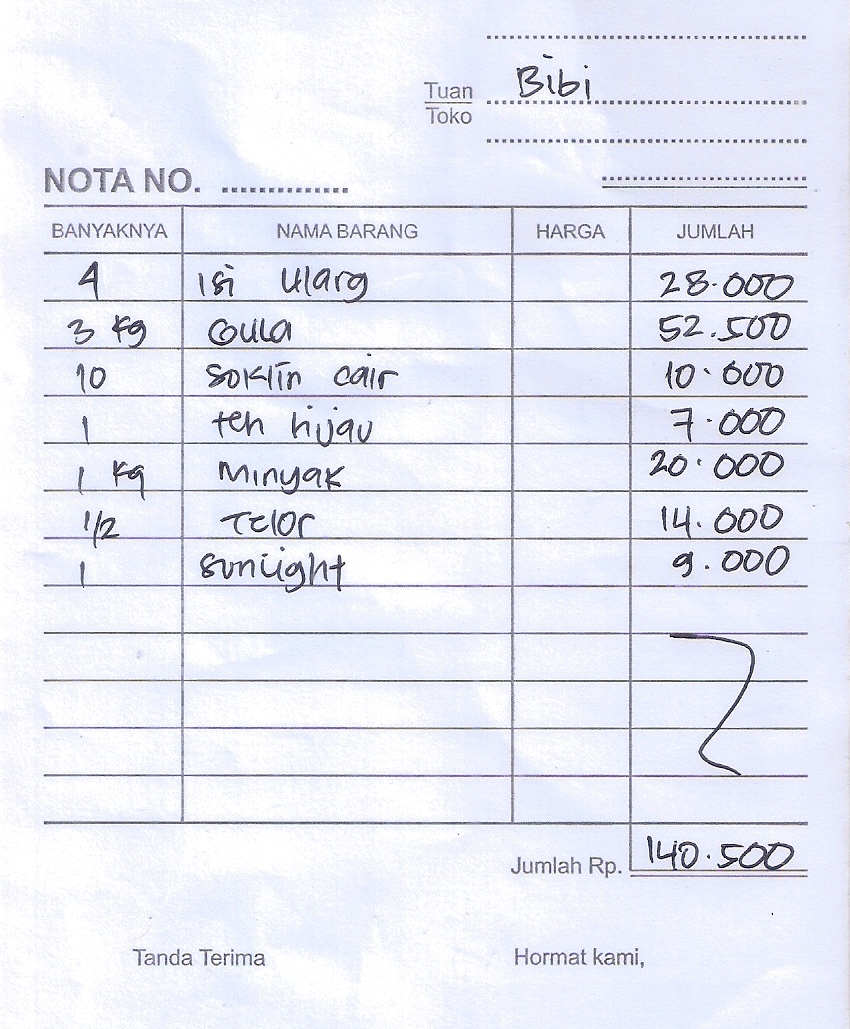 Tuan Bibi
Toko
NOTA NO. ..............
BANYAKNYA NAMA BARANG HARGA JUMLAH
4 isi Ularg 28.000
3 Kg Gula 52.500
10 SoKlin cair 10.000
1 teh hijau 7.000
1 Kg Minyak 20.000
1/2 Telor 14.000
1 Sunlight 9.000
Jumlah Rp. 140.500
Tanda Terima Hormat kami,